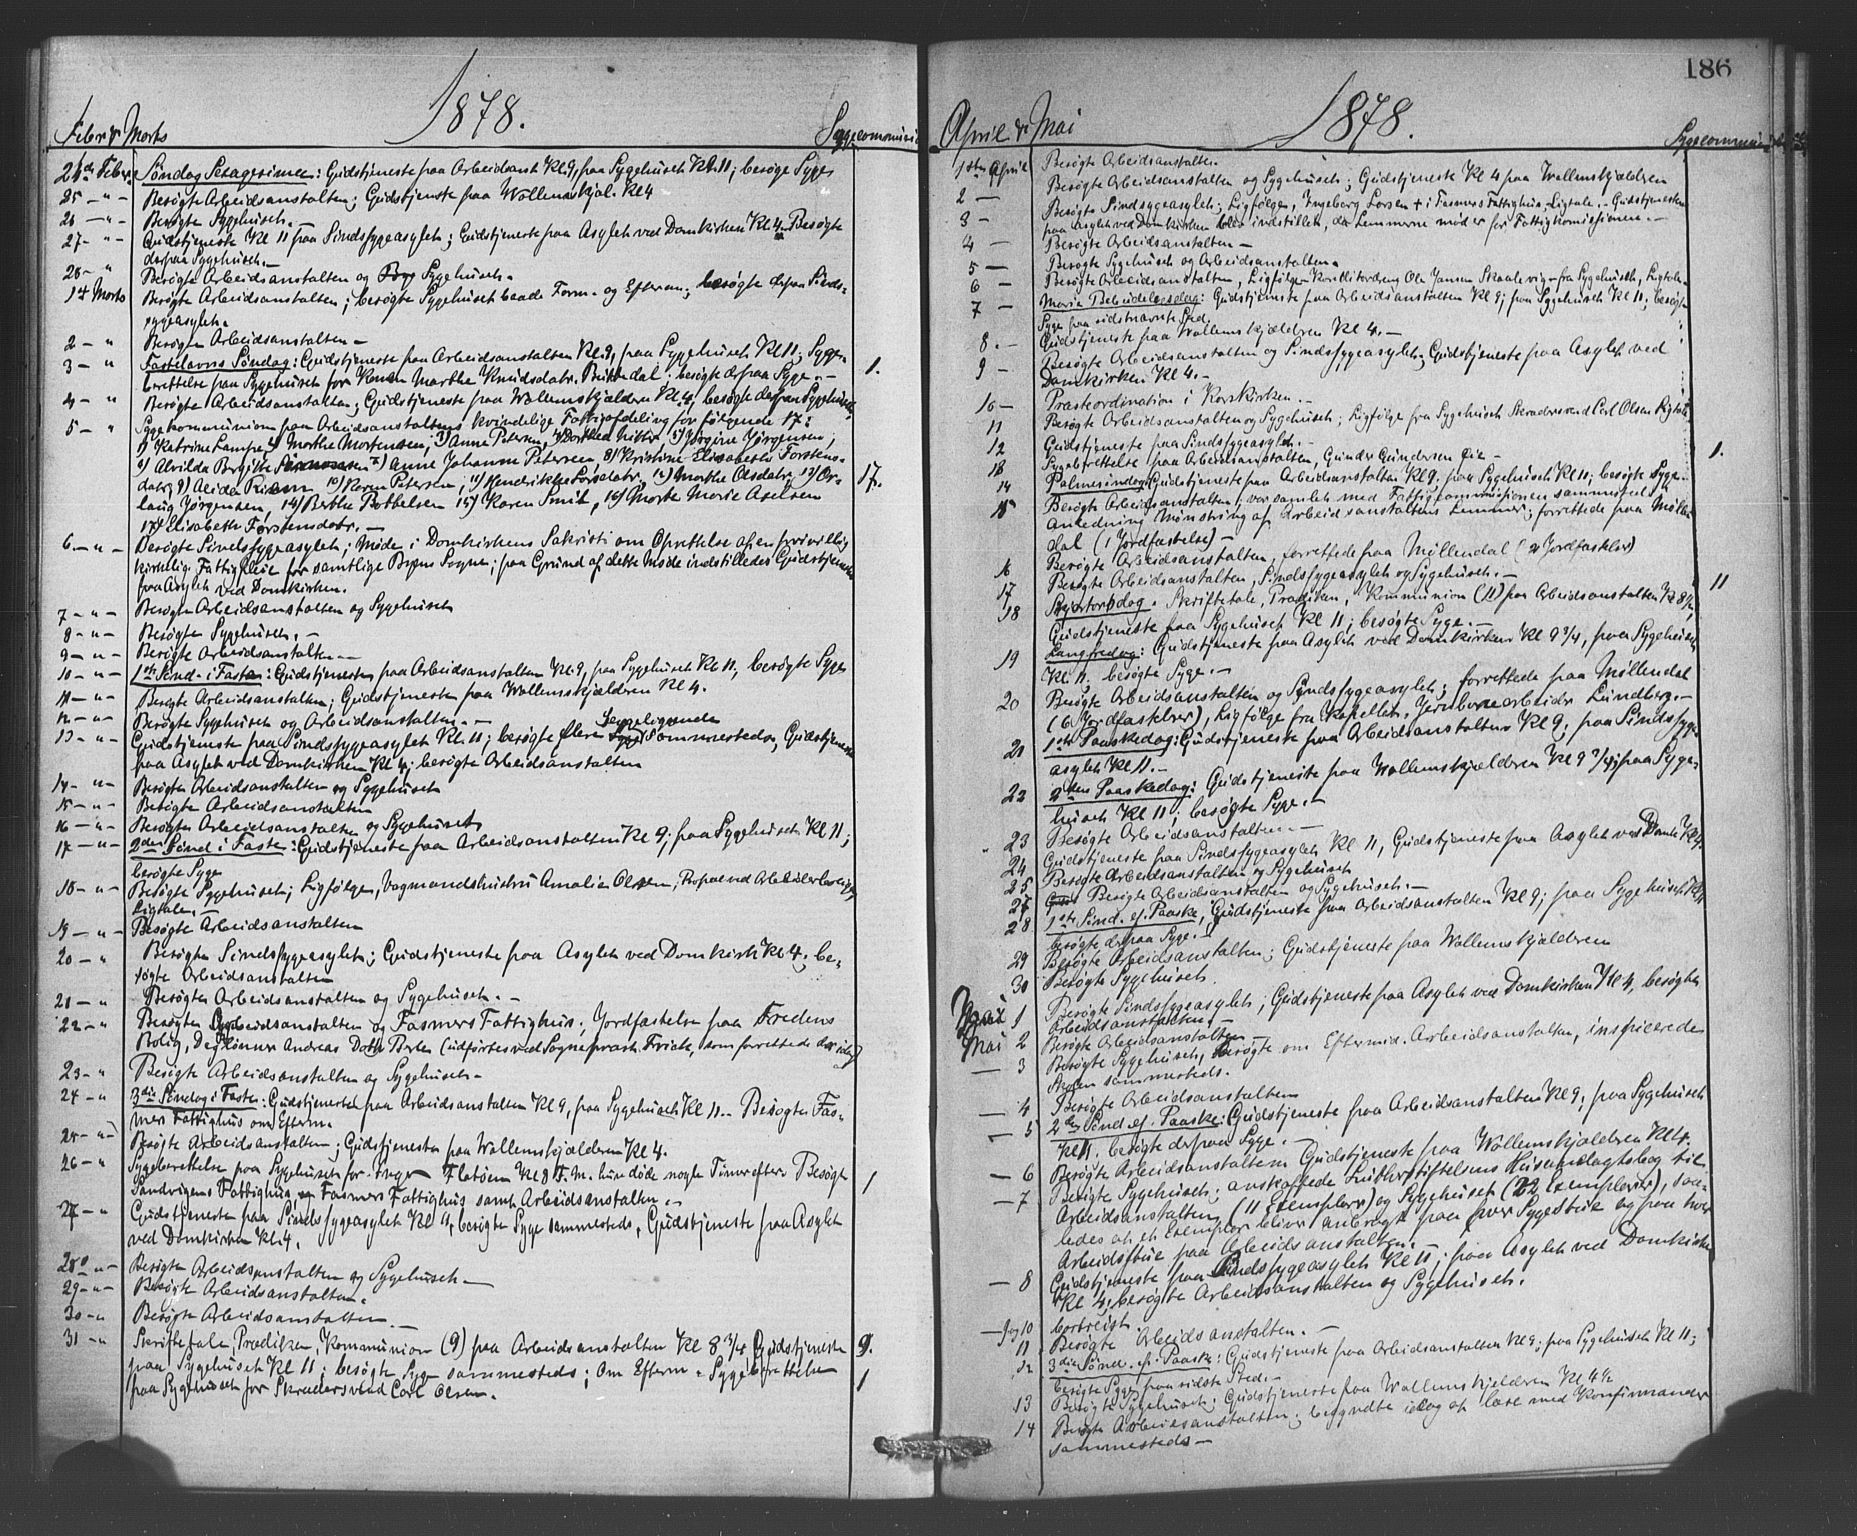 1878.
Febr & Marts
Sygecommunio
24de Febr. Søndag Sexagesima: Gudstjeneste paa Arbeidsanst Kl 9, paa Sygehuset Kl. 11; besøgte Syge
25 - " - Besøgte Arbeidsanstalten; Gudstjeneste paa Wollenskjæl. Kl 4
26 - " - Besøgte Sygehuset. -
27 - " - Gudstjeneste Kl 11 paa Sindssygeasylet; Gudstjeneste paa Asylet ved Domkirken Kl 4. Besøgte
derpaa Sygehuset. -
28 - " Besøgte Arbeidsanstalten og Sygehuset.
1ste Marts Besøgte Arbeidsanstalten; besøgte Sygehuset baade Form- og Efterm; besøgte derpaa Sinds-
sygeasylet.
2 - " Besøgte Arbeidsanstalten -
3 - " Fastelavns Søndag: Gudstjeneste paa Arbeidsanstalten Kl. 9, paa Sygehuset Kl 11; Syge-
berettelse paa Sygehuset for Konen Marthe Knudsdatr. Birkedal; besøgte derpaa Syge. - 1.
4 - " Besøgte Arbeidsanstalten; Gudstjeneste paa Wollenskjælderen Kl 4; besøgte derpaa Sygehuset
5 - " Sygekommunion paa Arbeidsanstaltens kvindelige Fattigafdeling for følgende 17:
1) Katrine Lampe, 2) Marthe Mortensen, 3) Anne Petersen, 4) Dorthea 5) Jørgine Jørgensen,
6) Alvilda Birgitte 7) Anne Johanne Petersen 8) Kristine Elisabeth Torstens-
datr, 9) Alida 10) Karen Petersen, 11) Hendrikke Larsdatr, 12) Marthe Olsdatr, 13) Os-
laug Jørgensen, 14) Berthe Bottelsen 15) Karen Smit, 16) Marte Marie Axelsen 17.
17) Elisabeth Torstensdatr. -
6 - " - Besøgte Sindssygeasylet; Møde i Domkirkens Sakristi om Oprettelse af en frivillig
kirkelig Fattigpleie for samtlige Byens Sogne; paa Grund af dette Møde indstilledes Gudstjeneste
paa Asylet ved Domkirken.
7 - " - Besøgte Arbeidsanstalten og Sygehuset
8 - " - Besøgte Sygehuset. -
9 - " - Besøgte Arbeidsanstalten -
10 - " - 1ste Sønd. i Faste: Gudstjeneste paa Arbeidsanstalten Kl. 9, paa Sygehuset Kl. 11; besøgte Syge
11 - " - Besøgte Arbeidsanstalten; Gudstjeneste paa Wollenskjælderen Kl 4.
12 - " - Besøgte Sygehuset og Arbeidsanstalten. -
13 - " - Gudstjeneste paa Sindssygeasylet Kl. 11; besøgte flere Sengeliggende sammesteds, Gudstjeneste
paa Asylet ved Domkirken Kl 4; besøgte Arbeidsanstalten
14 - " - Besøgte Arbeidsanstalten og Sygehuset
15 - " - Besøgte Arbeidsanstalten
16 - " - Besøgte Arbeidsanstalten og Sygehuset
17 - " - 2den Sønd i Faste: Gudstjeneste paa Arbeidsanstalten Kl 9; paa Sygehuset Kl 11;
besøgte Syge
18 - " - Besøgte Sygehuset; Ligfølge, Vogmandshustru Amalia Olsen,
Ligtale. -
19 - " - Besøgte Arbeidsanstalten
20 - " Besøgte Sindssygeasylet; Gudstjeneste paa Asylet ved Domkirk Kl 4; be-
søgte Arbeidsanstalten
21 - " Besøgte Arbeidsanstalten og Sygehuset. -
22 - " Besøgte Arbeidsanstalten og Fasmers Fattighus; Jordfæstelse paa Fredens
Bolig, Andreas (udførtes ved Sogneprest Irick, som forrettede der idag)
23 - " Besøgte Arbeidsanstalten og Sygehuset -
24 - " 3die Søndag i Faste: Gudstjeneste paa Arbeidsanstalten Kl 9, paa Sygehuset Kl 11 - Besøgte Fas-
mers Fattighus om Efterm.
25 - " - Besøgte Arbeidsanstalten; Gudstjeneste paa Wollenskjælderen Kl 4.
26 - " Sygeberettelse paa Sygehuset for Inger Fletøen Kl 8 F. M. hun døde nogle Timer efter. Besøgte
Sandvigens Fattighus, og Fasmers Fattighus samt Arbeidsanstalten. - 1
27 - " Gudstjeneste paa Sindssygeasylet Kl 11, besøgte Syge sammesteds, Gudstjeneste paa Asylet
ved Domkirken Kl. 4.
28 - " - Besøgte Arbeidsanstalten og Sygehuset -
29 - " - Besøgte Arbeidsanstalten.
30 - " Besøgte Arbeidsanstalten. -
31 - " Skriftetale, Prædiken, Kommunion (9) paa Arbeidsanstalten Kl 8 3/4 Gudstjeneste 9.
paa Sygehuset Kl 11; besøgte Syge sammesteds; om Efterm - Sygeberettelse
paa Sygehuset for Skræddersvend Carl Olsen. - 1
186
1878.
April & Mai
Sygecommunio
1ste April Besøgte Arbeidsanstalten.
2 - Besøgte Arbeidsanstalten og Sygehuset; Gudstjeneste Kl 4 paa Wollenskjælderen
3 - Besøgte Sindssygeasylet; Ligfølge, Ingeborg Larsen + i Fasmers Fattighus, Ligtale. - Gudstjenesten
paa Asylet ved Domkirken blev indstillet, da Lemmerne mødte for Fattigkomissionen. -
4 - Besøgte Arbeidsanstalten -
5 - Besøgte Sygehuset og Arbeidsanstalten.
6 - Besøgte Arbeidsanstalten, Ligfølge Ole Jansen Skaalevig - fra Sygehuset, Ligtale.
7 - Mariæ Bebudelsesdag: Gudstjeneste paa Arbeidsanstalten Kl 9; paa Sygehuset Kl 11; besøgte
Syge paa sidstnævnte Sted.
8. - Gudstjeneste paa Wollenskjælderen Kl 4. -
9 - Besøgte Arbeidsanstalten og Sindssygeasylet. Gudstjeneste paa Asylet ved
Domkirken Kl 4. -
10 - Præsteordination i Korskirken. -
11 Besøgte Arbeidsanstalten og Sygehuset; Ligfølge fra Sygehuset Skræddersvend Carl Olsen Ligtale
12 Gudstjeneste paa Sindssygeasylet. -
13 Sygeberettelse paa Arbeidsanstalten, Gunder Gundersen Øie - 1.
14 Palmesøndag Gudstjeneste paa Arbeidsanstalten Kl 9. paa Sygehuset Kl 11; besøgte Syge. -
15 Besøgte Arbeidsanstalten; var samlet med Fattigcommissionen sammesteds i
Anledning Mønstring af Arbeidsanstaltens Lemmer; forrettede paa Møllen-
dal (1 Jordfæstelse) -
16 Besøgte Arbeidsanstalten, forrettede paa Møllendal (2 Jordfæstelser)
17 Besøgte Arbeidsanstalten, Sindssygeasylet og Sygehuset. -
18 Skjærtorsdag. Skriftetale, Prædiken, Kommunion (11) paa Arbeidsanstalten Kl 8 1/2, 11
Gudstjeneste paa Sygehuset Kl 11; besøgte Syge. -
19 Langfredag: Gudstjeneste paa Asylet ved Domkirken Kl 9 3/4, paa Sygehuset
Kl 11. besøgte Syge. -
20 Besøgte Arbeidsanstalten og Sindssygeasylet; forrettede paa Møllendal
(6 Jordfæstelser), Ligfølge fra Kapellet, Lundberg. -
21 1ste Paaskedag: Gudstjeneste paa Arbeidsanstalten Kl 9; paa Sindssyge-
asylet Kl 11. -
22 2den Paaskedag: Gudstjeneste paa Wollenskjælderen Kl 9 3/4; paa Syge-
huset Kl 11; besøgte Syge. -
23 Besøgte Arbeidsanstalten. -
24 Gudstjeneste paa Sindssygeasylet Kl 11, Gudstjeneste paa Asylet ved Domk Kl 4
25 Besøgte Arbeidsanstalten og Sygehuset
27 Besøgte Arbeidsanstalten og Sygehuset. -
28 1ste Sønd. ef. Paaske, Gudstjeneste paa Arbeidsanstalten Kl 9; paa Sygehuset Kl 11
besøgte derpaa Syge. -
29 Besøgte Arbeidsanstalten; Gudstjeneste paa Wollenskjælderen
30 Besøgte Sygehuset.
Mai 1 Besøgte Sindssygeasylet; Gudstjeneste paa Asylet ved Domkirken Kl 4, besøgte
Arbeidsanstalten. -
Mai 2 Besøgte Arbeidsanstalten
- 3 Besøgte Sygehuset, besøgte om Eftermid. Arbeidsanstalten, inspicerede
Skolen sammesteds.
- 4 Besøgte Arbeidsanstalten
- 5 2den Sønd. ef. Paaske: Gudstjeneste paa Arbeidsanstalten Kl 9; paa Sygehuset
Kl 11. besøgte derpaa Syge. -
- 6 Besøgte Arbeidsanstalten Gudstjeneste paa Wollenskjælderen Kl 4.
- 7 Besøgte Sygehuset; anskaffede Lutherstiftelsens Husandagtsbog til
Arbeidsanstalten (11 Exemplarer) og Sygehuset (22 Exemplarer), saa-
ledes at et Exemplar bliver anbragt paa hver Sygestue og paa hver
Arbeidsstue paa Arbeidsanstalten.
- 8 Gudstjeneste paa Sindssygeasylet Kl 11; paa Asylet ved Domkirken
Kl 4; besøgte Arbeidsanstalten og Sygehuset.
- 9 og 10 bortreist.
11 Besøgte Arbeidsanstalten. -
12 3die Sønd. ef. Paaske: Gudstjeneste paa Arbeidsanstalten Kl 9; paa Sygehuset Kl 11;
besøgte Syge paa sidste Sted. -
13 Besøgte Sygehuset; Gudstjeneste paa Wollenskjælderen Kl 4 1/2
14 Besøgte Arbeidsanstalten; begyndte idag at læse med Konfirmander
sammesteds -